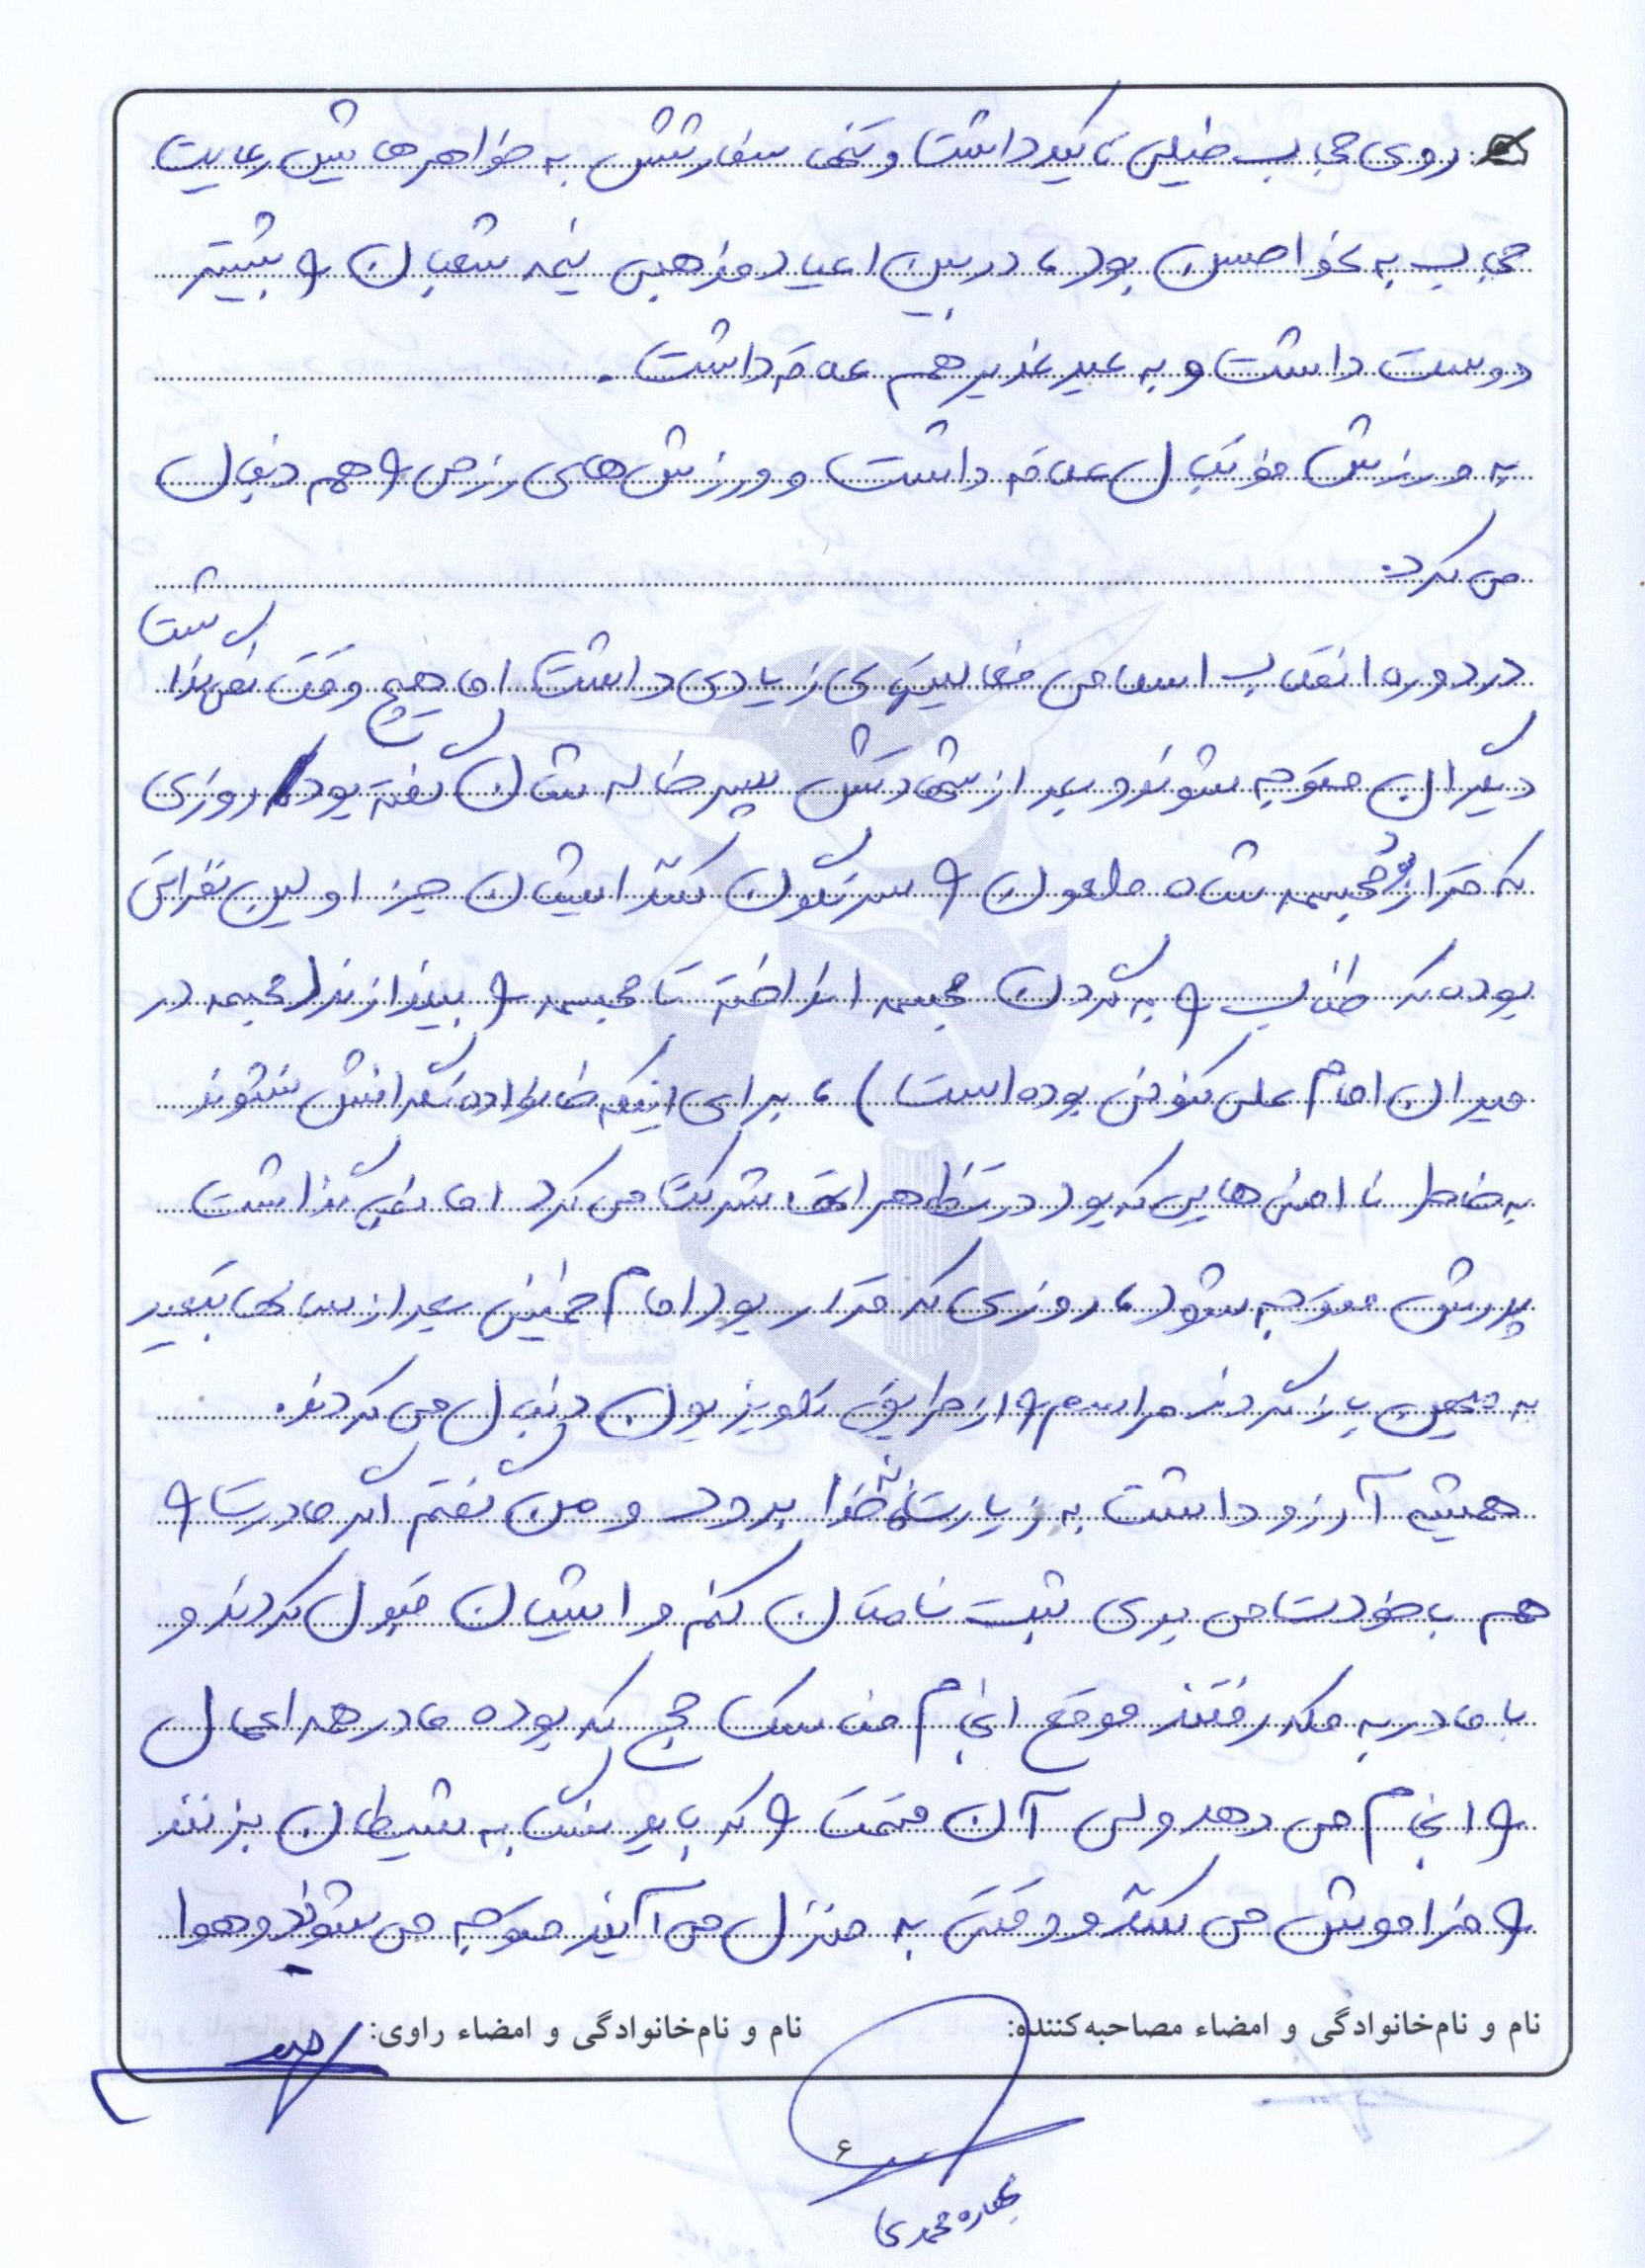 روی حجاب خیلی تاکید داشت و تنها سفارشش به خواهرهایش رعایت
حجاب به نحو احسن بود، در بین اعیاد مذهبی نیمه شعبان و بیشتر
دوست داشت و به عید غدیر هم علاقه داشت.
به ورزش فوتبال علاقه داشت و ورزش‌های رزمی و هم دنبال
می کرد.
در دوره انقلاب اسلامی فعالیتهای زیادی داشت اما هیچ وقت نمی‌گذاشت
دیگران متوجه شوند و بعد از شهادتش پسر خاله شان گفته بود روزی
که قرار بود مجسمه شاه ملعون و سرنگون کنند ایشان جز اولین نفراتی
بوده که طناب و به گردن مجسمه انداخته تا مجسمه و بیندازند (مجسمه در
میدان امام علی کنونی بوده است)، برای اینکه خانواده نگرانش نشوند
به خاطر ناامنی هایی که بود در تظاهراتها شرکت می کرد اما نمی گذاشت
پدرش متوجه شود، روزی که قرار بود امام خمینی بعد از سالها تبعید
به میهن باز گردند مراسم و از طریق تلویزیون دنبال می کردند.
همیشه آرزو داشت به زیارت خانه خدا برود و من گفتم اگر مادرت و
هم با خودت می بری ثبت نامتان کنم و ایشان قبول کردند و
با مادر به مکه رفتند موقع انجام مناسک حج که بوده مادر همه اعمال
و انجام می دهد ولی آن قسمت و که باید سنگ به شیطان بزنند
و فراموش می کنند و وقتی به منزل می آیند متوجه می شوند و هوا
نام و نام‌خانوادگی و امضاء مصاحبه‌کننده:
نام و نام‌خانوادگی و امضاء راوی:
۶
بهاره محمدی